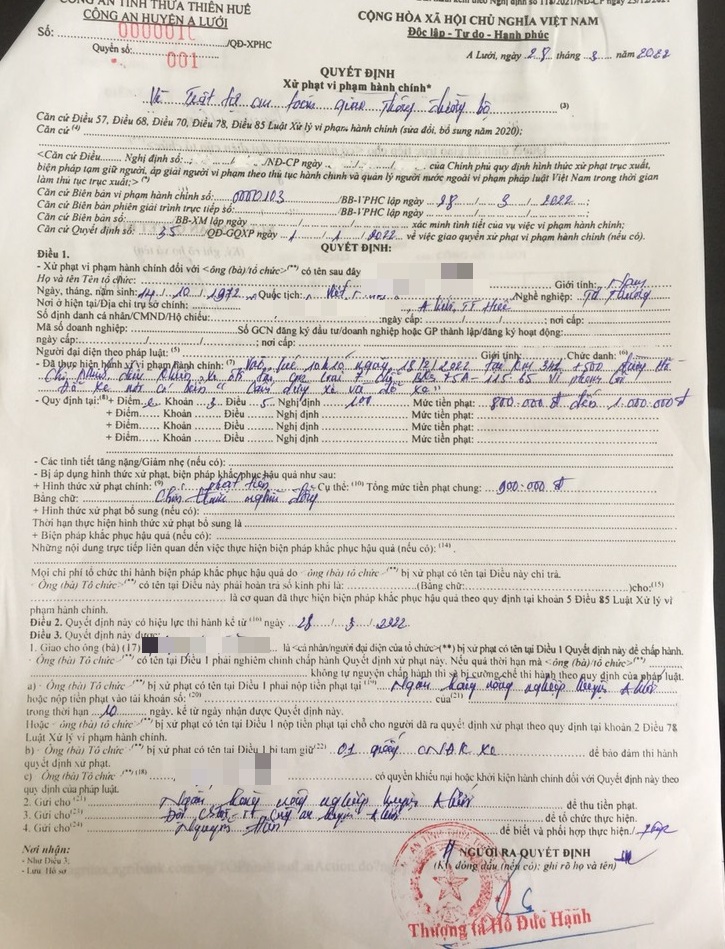 CÔNG AN TỈNH THỪA THIÊN HUẾ
CÔNG AN HUYỆN A LƯỚI
CỘNG HÒA XÃ HỘI CHỦ NGHĨA VIỆT NAM
Độc lập - Tự do - Hạnh phúc
Số: /QĐ-XPHC
Quyển số: 001
A Lưới, ngày 28 tháng 3 năm 2022
QUYẾT ĐỊNH
Xử phạt vi phạm hành chính*
Về Trật tự an toàn giao thông đường bộ (3)
Căn cứ Điều 57, Điều 68, Điều 70, Điều 78, Điều 85 Luật Xử lý vi phạm hành chính (sửa đổi, bổ sung năm 2020);
Căn cứ (4)
<Căn cứ Điều Nghị định số: / /NĐ-CP ngày / / của Chính phủ quy định hình thức xử phạt trục xuất,
biện pháp tạm giữ người, áp giải người vi phạm theo thủ tục hành chính và quản lý người nước ngoài vi phạm pháp luật Việt Nam trong thời gian
làm thủ tục trục xuất;> (*)
Căn cứ Biên bản vi phạm hành chính số: 0000103 /BB-VPHC lập ngày 28 / 3 / 2022;
Căn cứ Biên bản phiên giải trình trực tiếp số: /BB-VPHC lập ngày / / ;
Căn cứ Biên bản số: /BB-XM lập ngày / / xác minh tình tiết của vụ việc vi phạm hành chính;
Căn cứ Quyết định số: 35 /QĐ-GQXP ngày 1 / 1 / 2022 về việc giao quyền xử phạt vi phạm hành chính (nếu có).
QUYẾT ĐỊNH:
Điều 1.
- Xử phạt vi phạm hành chính đối với <ông (bà)/tổ chức>(**) có tên sau đây
Họ và tên Tổ chức: Giới tính: Nam
Ngày, tháng, năm sinh: 14 / 10 / 1972 Quốc tịch: Việt Nghề nghiệp: Tự
Nơi ở hiện tại/Địa chỉ trụ sở chính: A Lưới, TT Huế
Số định danh cá nhân/CMND/Hộ chiếu: ngày cấp: / / ; nơi cấp:
Mã số doanh nghiệp: Số GCN đăng ký đầu tư/doanh nghiệp hoặc GP thành lập/đăng ký hoạt động:
ngày cấp: / / ; nơi cấp:
Người đại diện theo pháp luật: (5) Giới tính: Chức danh: (6)
- Đã thực hiện hành vi vi phạm hành chính: (7) Vào lúc 10h10 ngày 18/ /2022 tại Km 342 + 500 đường Hồ
Chí Minh, điều khiển xe ô tô BKS 75A - 115.65 vi phạm lỗi
Đỗ xe nơi có biển "Cấm dừng xe và đỗ xe".
- Quy định tại: (8) + Điểm e Khoản 3 Điều 5 Nghị định 100 Mức tiền phạt: 800.000đ đến 1.000.000đ
+ Điểm Khoản Điều Nghị định Mức tiền phạt:
+ Điểm Khoản Điều Nghị định Mức tiền phạt:
+ Điểm Khoản Điều Nghị định Mức tiền phạt:
- Các tình tiết tăng nặng/Giảm nhẹ (nếu có):
- Bị áp dụng hình thức xử phạt, biện pháp khắc phục hậu quả như sau:
+ Hình thức xử phạt chính: (9) phạt tiền Cụ thể: (10) Tổng mức tiền phạt chung: 900.000đ
Bằng chữ: Chín trăm nghìn đồng
+ Hình thức xử phạt bổ sung (nếu có):
Thời hạn thực hiện hình thức xử phạt bổ sung là
+ Biện pháp khắc phục hậu quả (nếu có):
Những nội dung trực tiếp liên quan đến việc thực hiện biện pháp khắc phục hậu quả (nếu có): (14)
Mọi chi phí tổ chức thi hành biện pháp khắc phục hậu quả do <ông (bà)/tổ chức>(**) bị xử phạt có tên tại Điều này chi trả.
<Ông (bà)/Tổ chức>(**) bị xử phạt có tên tại Điều này phải hoàn trả số kinh phí là: (Bằng chữ: )cho: (15)
là cơ quan đã thực hiện biện pháp khắc phục hậu quả theo quy định tại khoản 5 Điều 85 Luật Xử lý vi
phạm hành chính.
Điều 2. Quyết định này có hiệu lực thi hành kể từ (16) ngày 28 / 3 / 2022.
Điều 3. Quyết định này được:
1. Giao cho ông (bà) (17) là <cá nhân/người đại diện của tổ chức>(**) bị xử phạt có tên tại Điều 1 Quyết định này để chấp hành.
<Ông (bà)/Tổ chức>(**) có tên tại Điều 1 phải nghiêm chỉnh chấp hành Quyết định xử phạt này. Nếu quá thời hạn mà <ông (bà)/tổ chức>(**)
không tự nguyện chấp hành thì sẽ bị cưỡng chế thi hành theo quy định của pháp luật.
a) <Ông (bà)/Tổ chức>(**) bị xử phạt có tên tại Điều 1 phải nộp tiền phạt tại (19) Ngân hàng nông nghiệp huyện A Lưới
hoặc nộp tiền vào tài khoản số: (20) của (21)
trong thời hạn 10 ngày, kể từ ngày nhận được Quyết định này.
Hoặc <ông (bà)/tổ chức>(**) bị xử phạt có tên tại Điều 1 nộp tiền phạt tại chỗ cho người đã ra quyết định xử phạt theo quy định tại khoản 2 Điều 78
Luật Xử lý vi phạm hành chính.
b) <Ông (bà)/Tổ chức>(**) bị xử phạt có tên tại Điều 1 bị tạm giữ (22) 01 giấy CNĐK xe để bảo đảm thi hành
quyết định xử phạt.
c) <Ông (bà)/Tổ chức>(**) (18) có quyền khiếu nại hoặc khởi kiện hành chính đối với Quyết định này theo
quy định của pháp luật.
2. Gửi cho (21) Ngân hàng nông nghiệp huyện A Lưới để thu tiền phạt.
3. Gửi cho (23) Đội CSGT-TT Công an huyện A Lưới để tổ chức thực hiện.
4. Gửi cho (24) để biết và phối hợp thực hiện./.
Nơi nhận:
- Như Điều 3;
- Lưu Hồ sơ
NGƯỜI RA QUYẾT ĐỊNH
(Ký, đóng dấu (nếu có); ghi rõ họ và tên)
Thượng tá Hồ Đức Hạnh